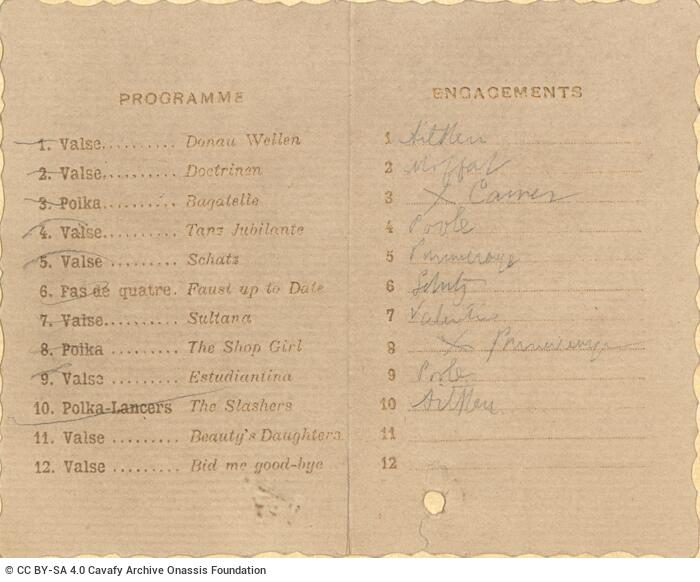 PROGRAMME
1. Valse.......... Donau Wellen
2. Valse.......... Doctrinen
3. Polka.......... Bagatelle
4. Valse.......... Tanz Jubilante
5. Valse.......... Schatz
6. Pas de quatre. Faust up to Date
7. Valse.......... Sultana
8. Polka .......... The Shop Girl
9. Valse .......... Estudiantina
10. Polka-Lancers The Slashers
11. Valse .......... Beauty's Daughters
12. Valse .......... Bid me good-bye
ENGAGEMENTS
1 Aitken
2 Moffat
3 X
4 Poole
5
6 Schutz
7
8 X
9 Poole
10 Aitken
11
12
© CC BY-SA 4.0 Cavafy Archive Onassis Foundation